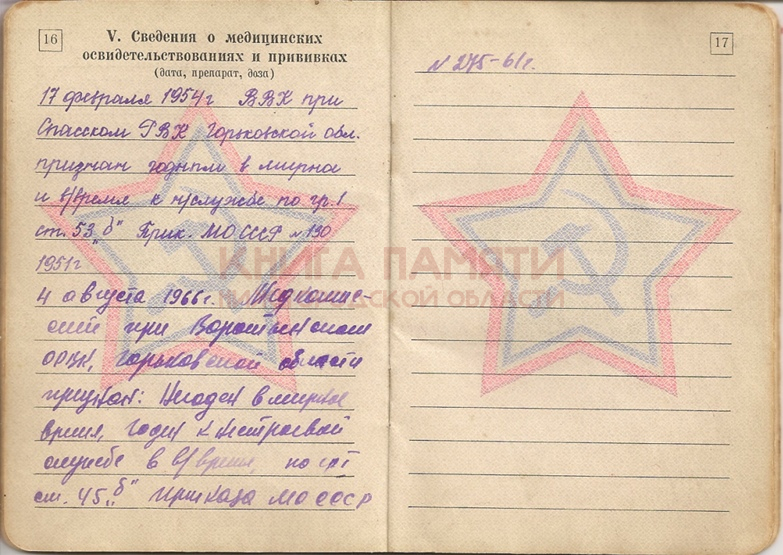 16
V. Сведения о медицинских
освидетельствованиях и прививках
(дата, препарат, доза)
17 февраля 1954 г ВВК при
Спасском РВК Горьковской обл.
признан годным в мирное
и в/время к н/службе по гр. I
ст. 53 „б" Прик. МО СССР №130
1951 г
4 августа 1966 г. Медкомис-
сией при Воротынском
ОРВК, Горьковской области
признан: Негоден в мирное
время, годен к нестроевой
службе в в/время, по гр I
ст. 45 „б" приказа МО СССР
17
N 275-61 г.
КНИГА ПАМЯТИ
НИЖЕГОРОДСКОЙ ОБЛАСТИ